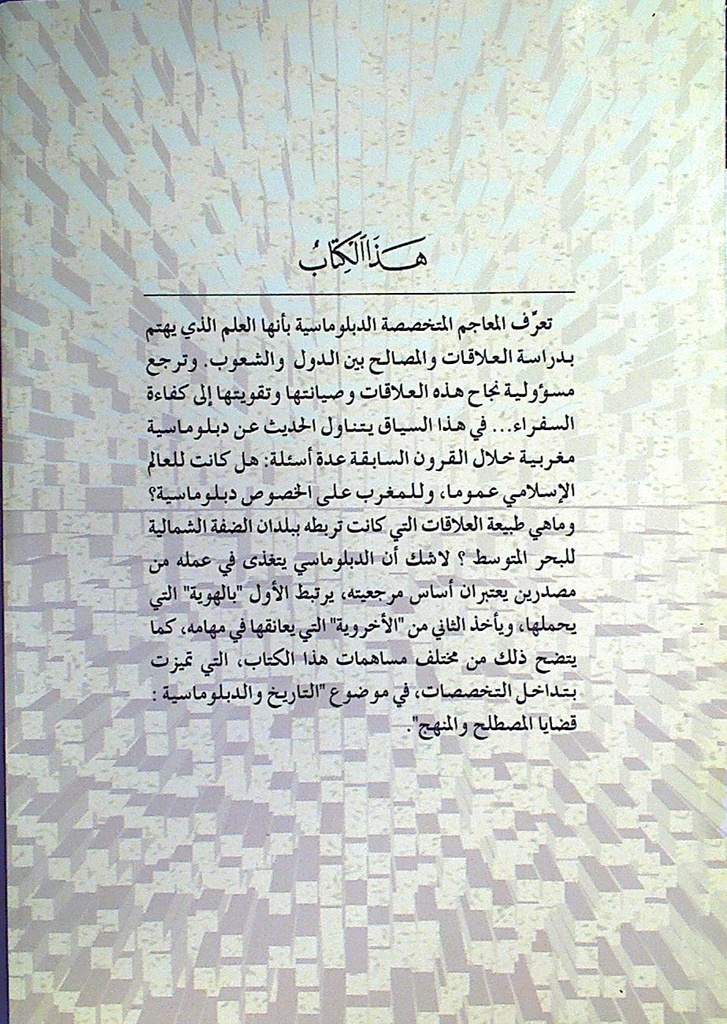 هَذَا الْكِتَابُ
تعرّف المعاجم المتخصصة الدبلوماسية بأنها العلم الذي يهتم
بدراسة العلاقات والمصالح بين الدول والشعوب. وترجع
مسؤولية نجاح هذه العلاقات وصيانتها وتقويتها إلى كفاءة
السفراء... في هذا السياق يتناول الحديث عن دبلوماسية
مغربية خلال القرون السابقة عدة أسئلة: هل كانت للعالم
الإسلامي عموما، وللمغرب على الخصوص دبلوماسية؟
وماهي طبيعة العلاقات التي كانت تربطه ببلدان الضفة الشمالية
للبحر المتوسط ؟ لاشك أن الدبلوماسي يتغذى في عمله من
مصدرين يعتبران أساس مرجعيته، يرتبط الأول "بالهوية" التي
يحملها، ويأخذ الثاني من "الأخروية" التي يعانقها في مهامه، كما
يتضح ذلك من مختلف مساهمات هذا الكتاب، التي تميزت
بتداخل التخصصات، في موضوع "التاريخ والدبلوماسية :
قضايا المصطلح والمنهج".